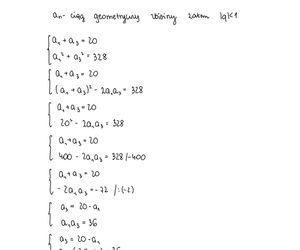 an- ciąg geometryczny zbieżny zatem |q|<1
a₁ + a₃ = 20
a₁² + a₃² = 328
a₁ + a₃ = 20
(a₁ + a₃)² - 2a₁a₃ = 328
a₁ + a₃ = 20
20² - 2a₁a₃ = 328
a₁ + a₃ = 20
400 - 2a₁a₃ = 328 /-400
a₁ + a₃ = 20
-2a₁a₃ = -72 /:(-2)
a₃ = 20 - a₁
a₁a₃ = 36
a₃ = 20 - a₁